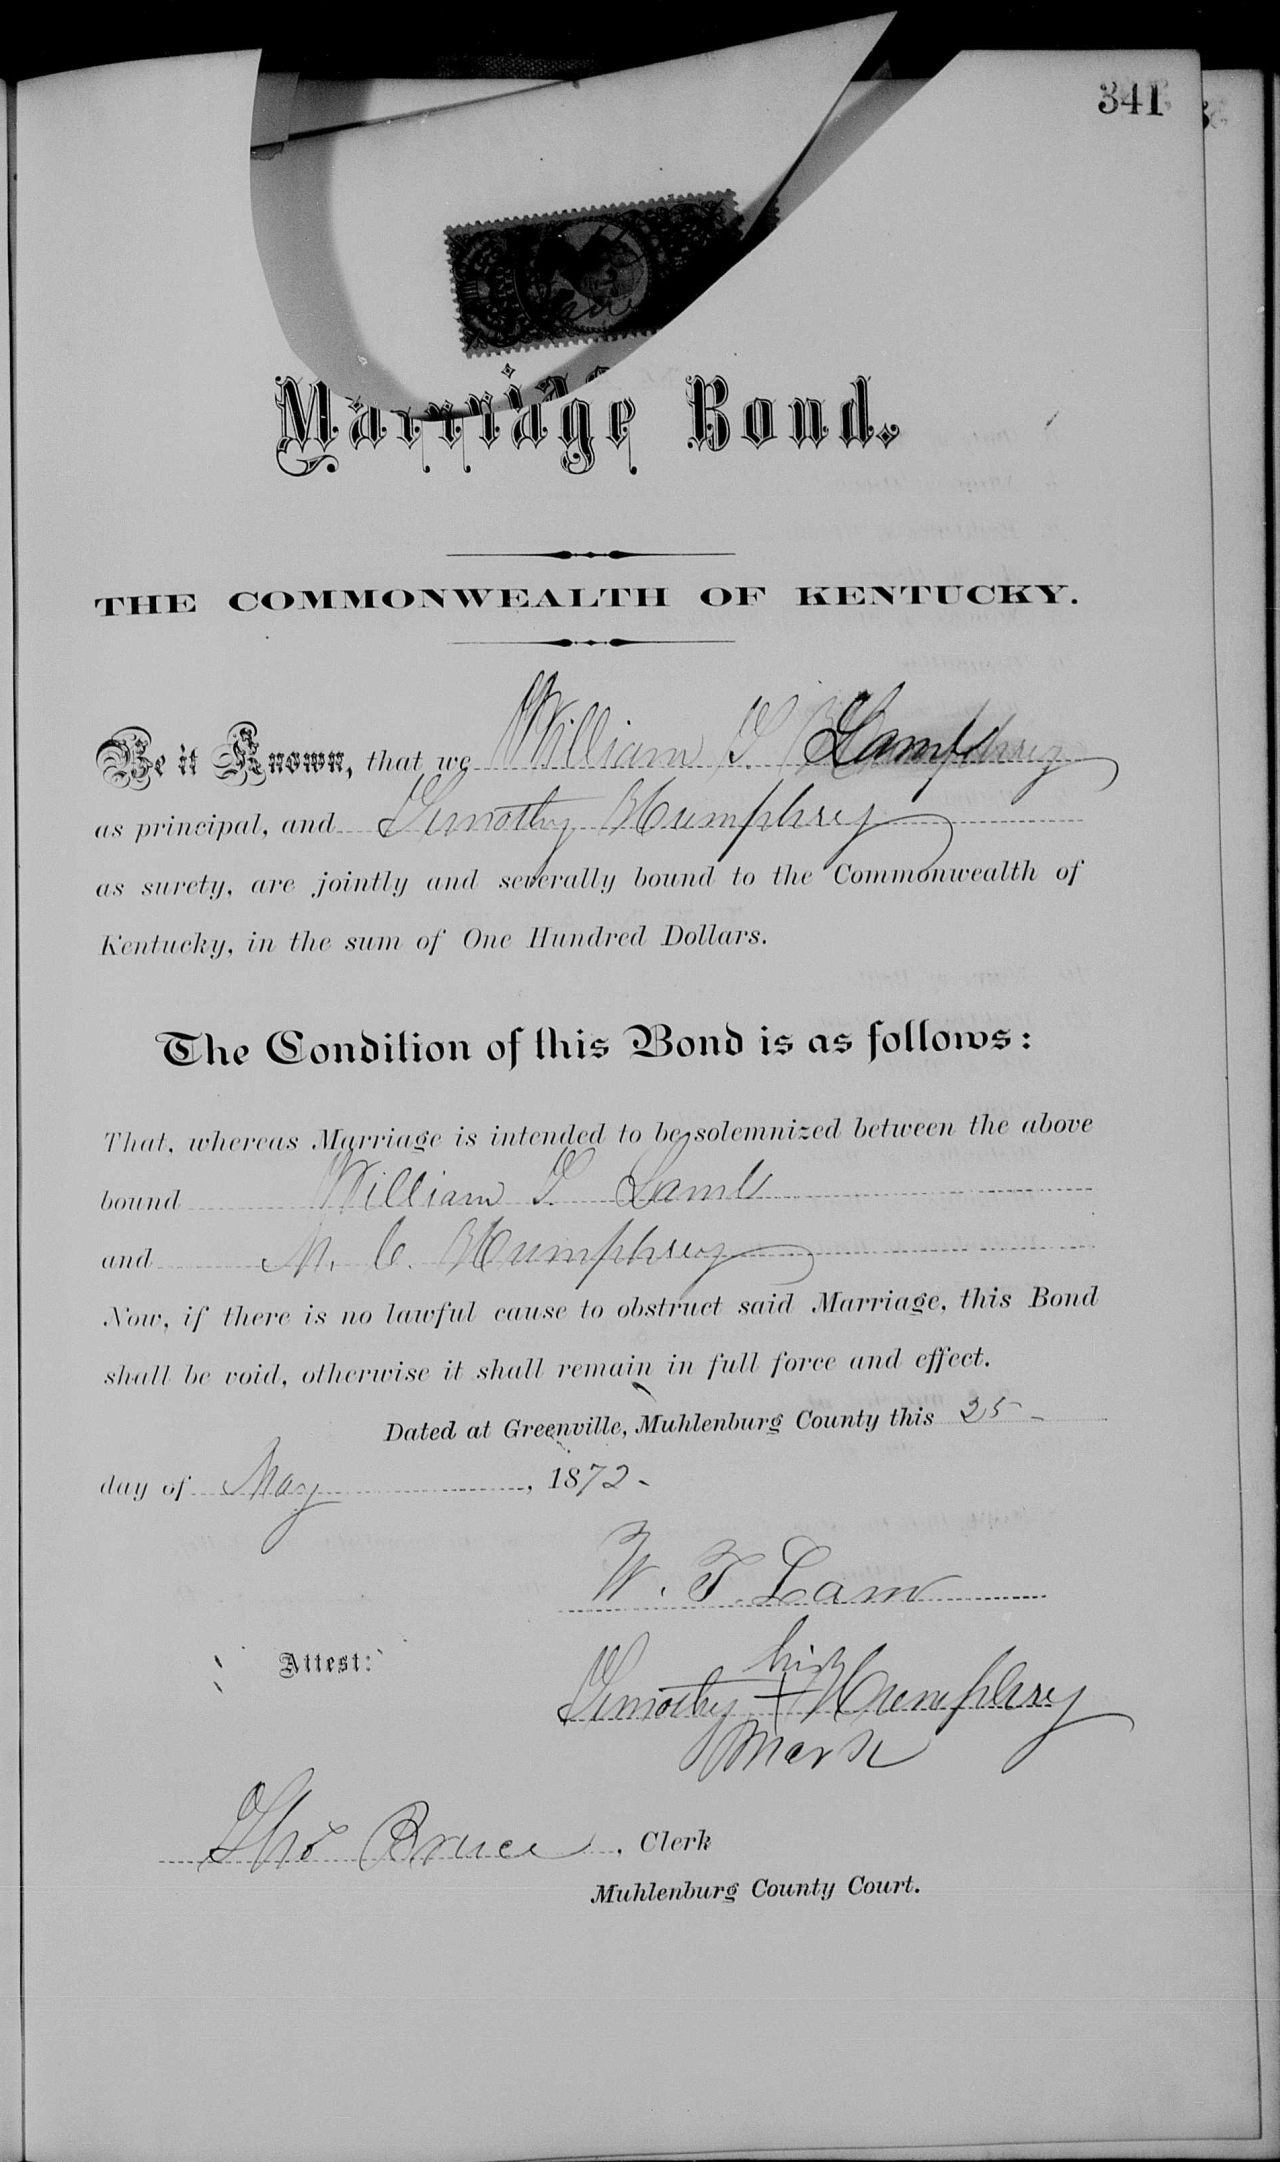 341
Marriage Bond.
THE COMMONWEALTH OF KENTUCKY.
Be it Known, that we William T. Lamb
as principal, and Timothy Humphrey
as surety, are jointly and severally bound to the Commonwealth of
Kentucky, in the sum of One Hundred Dollars.
The Condition of this Bond is as follows:
That, whereas Marriage is intended to be solemnized between the above
bound William T. Lamb
and M. C. Humphrey
Now, if there is no lawful cause to obstruct said Marriage, this Bond
shall be void, otherwise it shall remain in full force and effect.
Dated at Greenville, Muhlenburg County this 25
day of May, 1872.
W. T. Lam
his
Attest: Timothy + Humphrey
mark
Tho's Bruce, Clerk
Muhlenburg County Court.